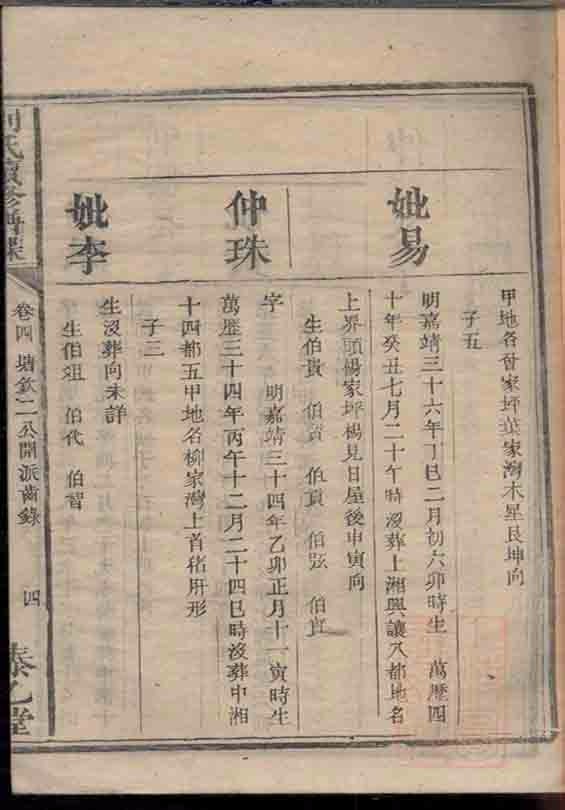 甲地名晉家坪葉家灣木星艮坤向
子五
妣易
明嘉靖三十六年丁巳二月初六卯時生 萬歷四
十年癸丑七月二十午時沒葬上湘興讓八都地名
上界頭楊家坪楊見日屋後申寅向
生伯貴 伯貢 伯
仲珠
字 明嘉靖三十四年乙卯正月十一寅時生
萬歷三十四年丙午十二月二十四巳時沒葬中湘
十四都五甲地名柳家灣上首豬肝形
子三
妣李
生沒葬向未詳
生伯俎 伯代 伯習
氏續修譜
卷四 塘欽二公開派齒錄 四
泰乙堂